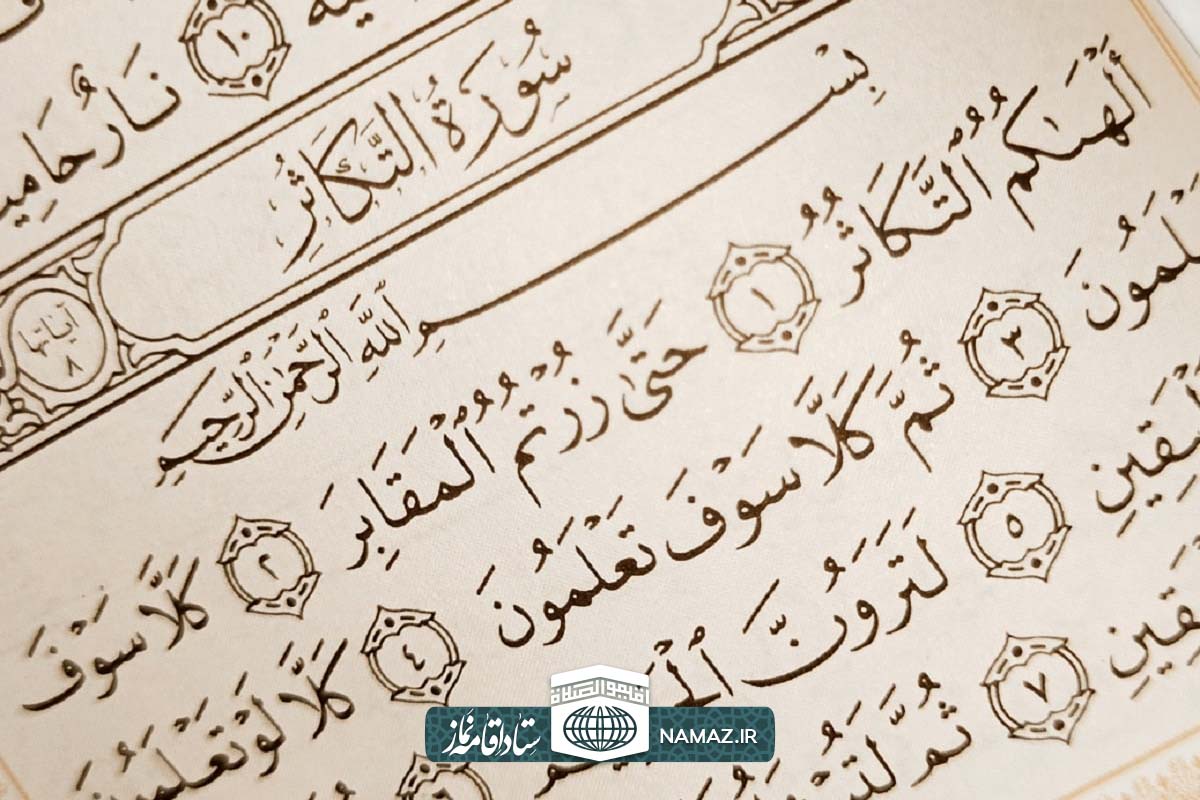 نَارٌ حَامِيَةٌ ١٠
سُورَةُ التَّكَاثُرِ
آياتها ٨
بِسْمِ ٱللَّهِ ٱلرَّحْمَٰنِ ٱلرَّحِيمِ
أَلْهَىٰكُمُ ٱلتَّكَاثُرُ ١ حَتَّىٰ زُرْتُمُ ٱلْمَقَابِرَ ٢ كَلَّا سَوْفَ
تَعْلَمُونَ ٣ ثُمَّ كَلَّا سَوْفَ تَعْلَمُونَ ٤ كَلَّا لَوْ تَعْلَمُونَ
ٱلْيَقِينِ ٥ لَتَرَوُنَّ
ٱلْيَقِينِ ٧ ثُمَّ
اقیموا الصلاة
ستاد اقامه نماز
NAMAZ.IR